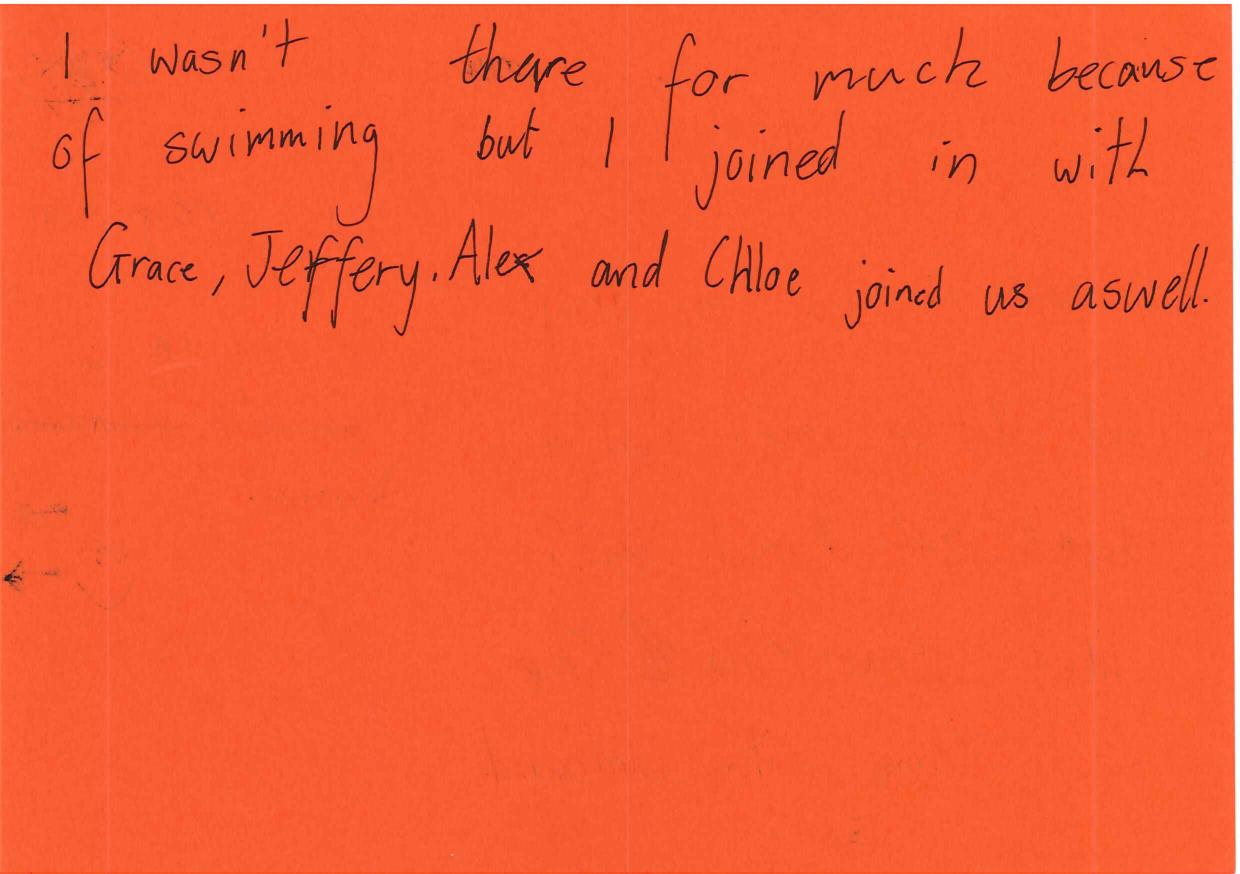 I wasn't there for much because
of swimming but I joined in with
Grace, Jeffery. Alex and Chloe joined us aswell.